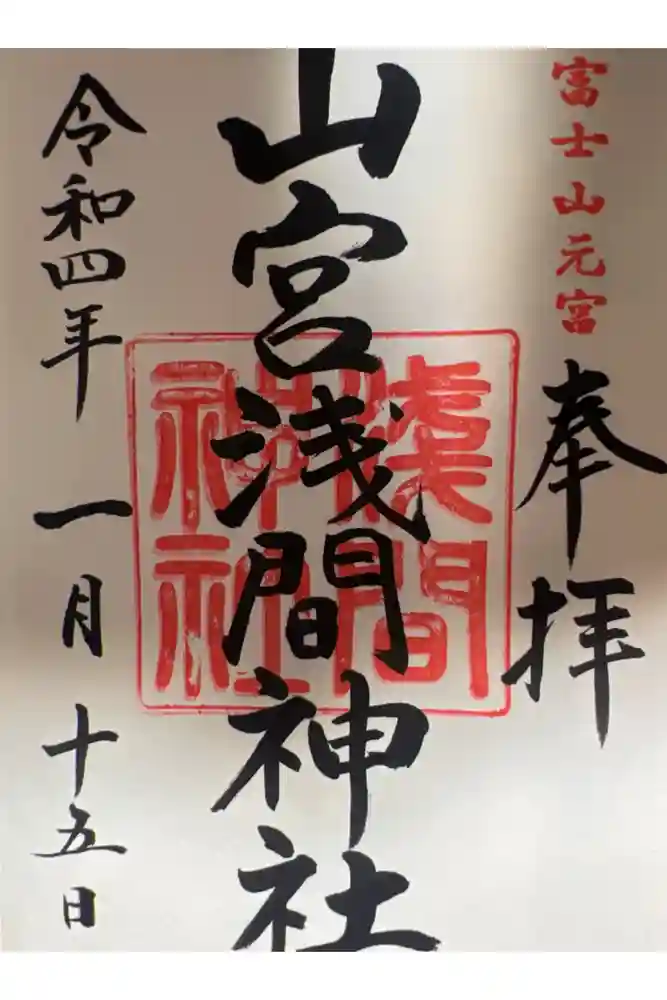 富士山元宮
奉拝
山宮浅間神社
淺間
神社
令和四年 一月 十五日